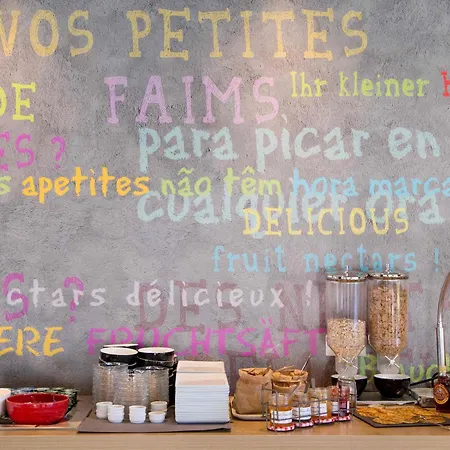 VOS PETITES
DE FAIMS Ihr kleiner
ES ?
para picar en
s apetites não têm hora marca
cualquier ora
DELICIOUS
fruit nectars !
S ?
ctars délicieux !
DES N
ERE FRUCHTSÄFT